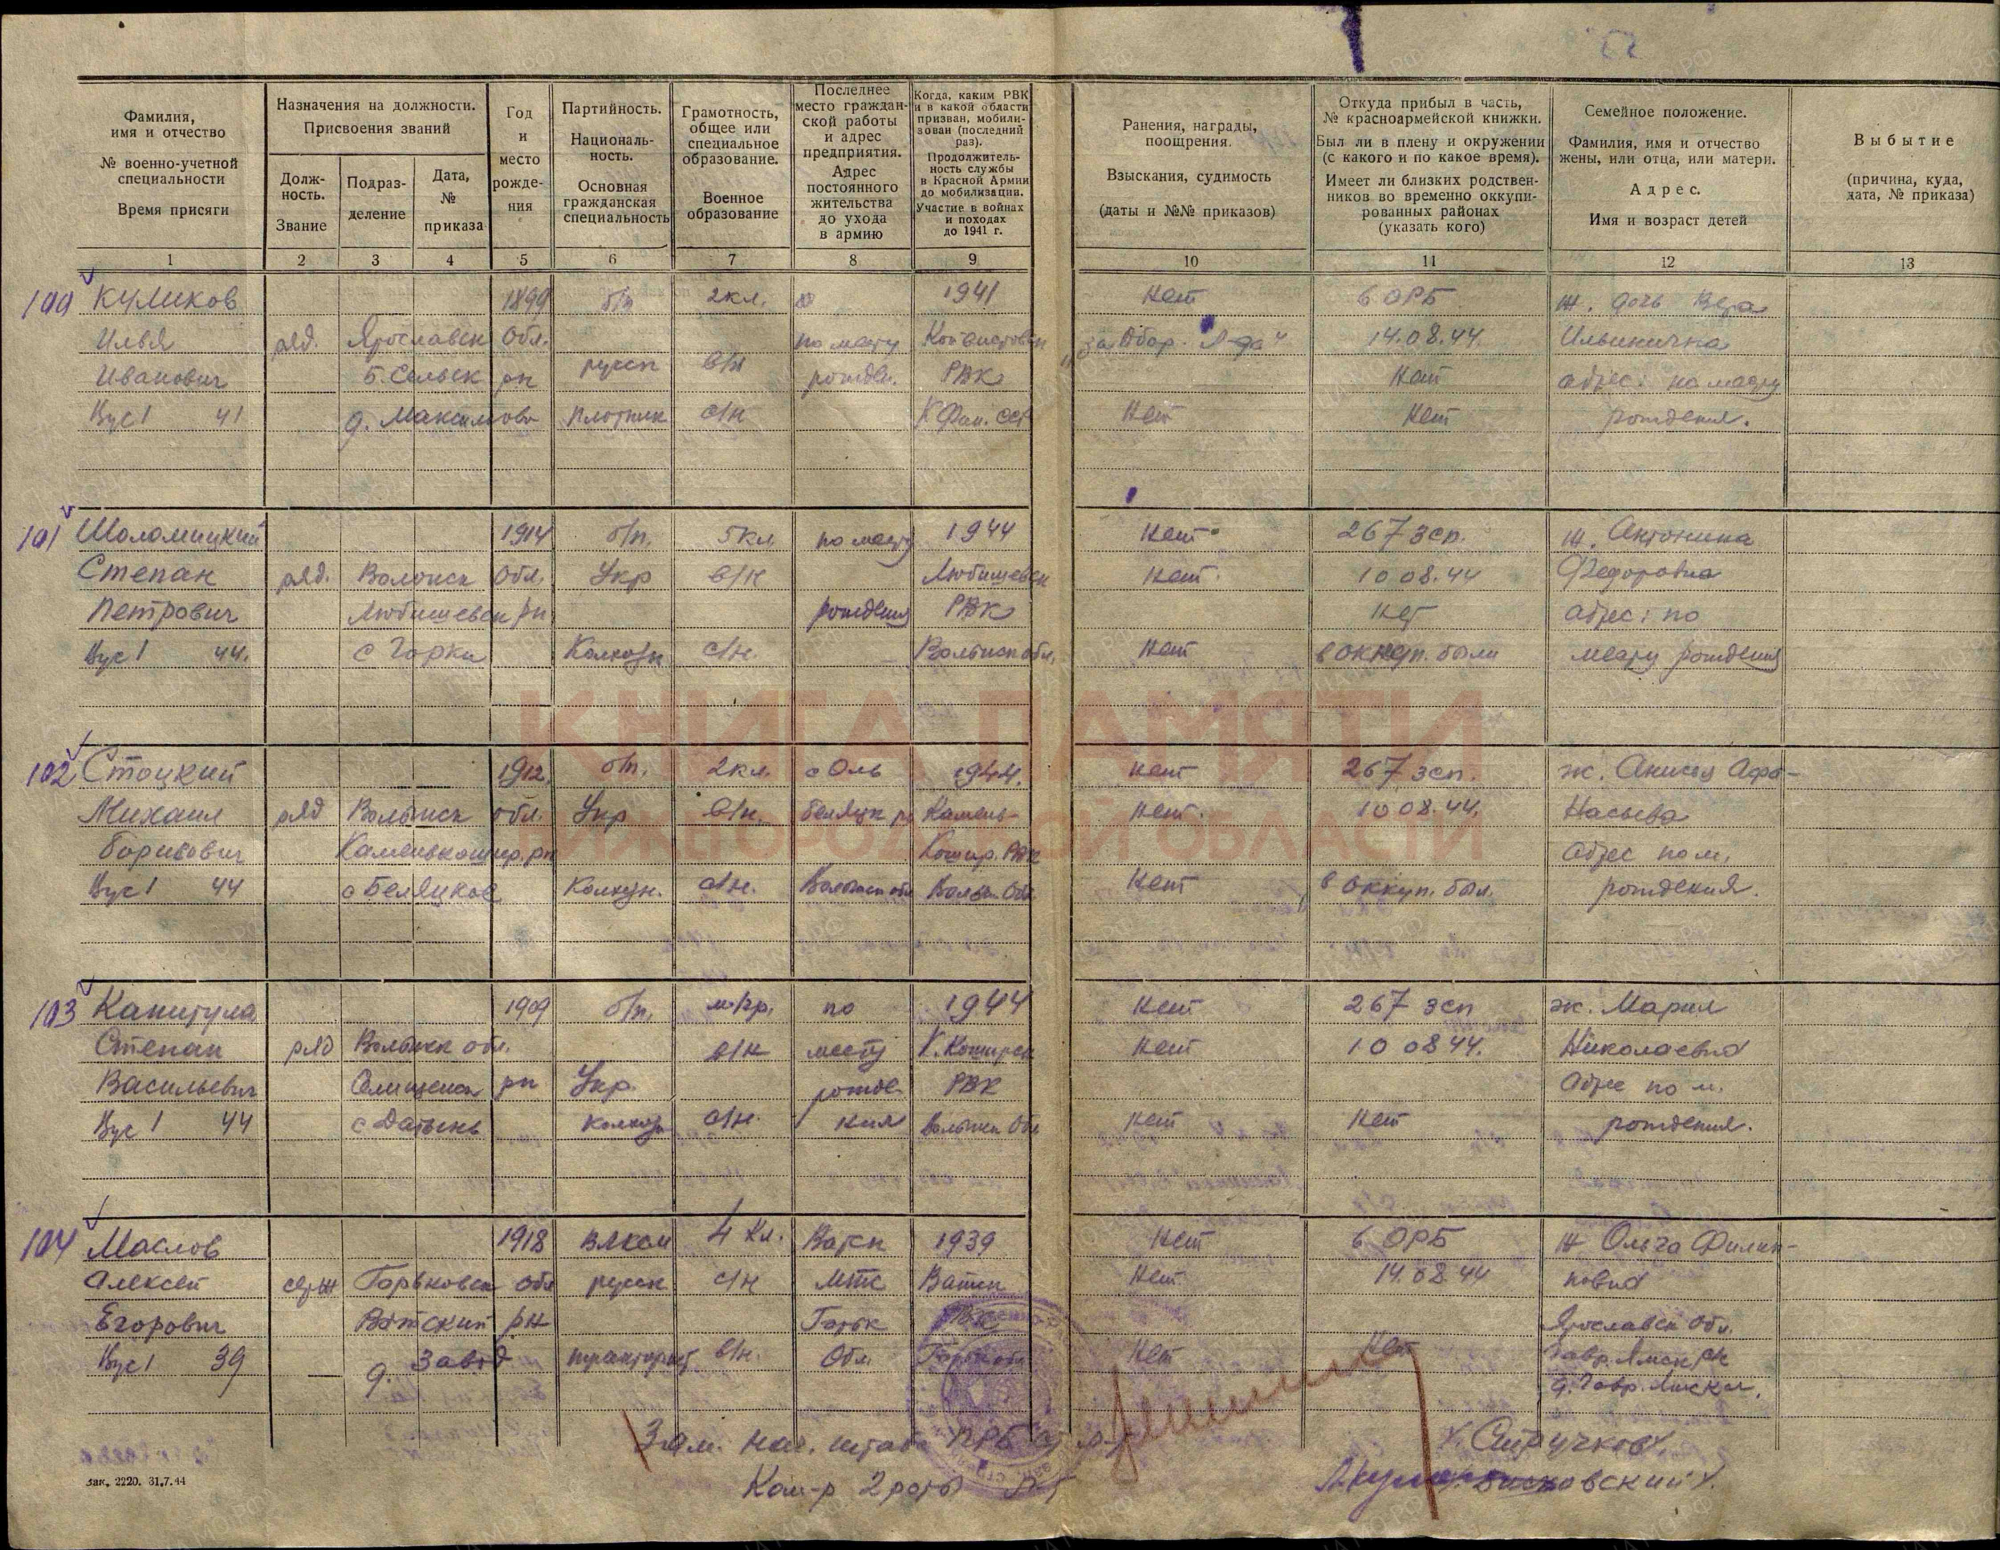 Фамилия,
имя и отчество
№ военно-учетной
специальности
Время присяги
Назначения на должности.
Присвоения званий
Долж-
ность.
Звание
Подраз-
деление
Дата,
№
приказа
Год
и
место
рожде-
ния
Партийность.
Националь-
ность.
Основная
гражданская
специальность
Грамотность,
общее или
специальное
образование.
Военное
образование
Последнее
место граждан-
ской работы
и адрес
предприятия.
Адрес
постоянного
жительства
до ухода
в армию
Когда, каким РВК
и в какой области
призван, мобили-
зован (последний
раз).
Продолжитель-
ность службы
в Красной Армии
до мобилизации.
Участие в войнах
и походах
до 1941 г.
Ранения, награды,
поощрения.
Взыскания, судимость
(даты и №№ приказов)
Откуда прибыл в часть,
№ красноармейской книжки.
Был ли в плену и окружении
(с какого и по какое время).
Имеет ли близких родствен-
ников во временно оккупи-
рованных районах
(указать кого)
Семейное положение.
Фамилия, имя и отчество
жены, или отца, или матери.
Адрес.
Имя и возраст детей
Выбытие
(причина, куда,
дата, № приказа)
1 2 3 4 5 6 7 8 9 10 11 12 13
100 Куликов 1899 б/п 2 кл. 1941 нет 6 ОРБ ж. дочь Вера
Илья ряд. Ярославск обл. по месту за Обор. Л-да" 14.08.44. Ильинична
Иванович Б. Сельск рн русск в/н рожден. РВК нет адрес: по месту
Вус 1 41 д. Максимово плотник с/н К Фин. ССР нет нет рождения.
101 Шоломицкий 1914 б/п. 5 кл. по месту 1944 нет 267 зсп. ж. Антонина
Степан ряд. Волынск обл. Укр в/н Любишевск нет. 10 08.44 Федоровна
Петрович Любишевск рн рождения РВК нет адрес: по
Вус 1 44. с Горки Колхозн с/н. Волынск обл. нет в оккуп. были месту рождения
102 Стоцкий 1912. б/п. 2 кл. с Оль 1944. нет 267 зсп. ж. Анисья Афа-
Михаил ряд Волынск обл. Укр в/н. Камень- нет. 10 08.44. насьева
Борисович Каменькошир. рн Кошир. РВК адрес по м.
Вус 1 44 Колхозн. с/н. Волынск обл Волын. Обл. нет в оккуп. был. рождения.
103 Капитула 1909 б/п. м/гр. по 1944 нет 267 зсп ж. Мария
Степан ряд Волынск обл. в/н месту К. Коширск нет 10 08 44. Николаевна
Васильевич рн Укр. рожде- РВК Адрес по м.
Вус 1 44 с Датынь колхозн с/н. ния Волынск Обл нет нет рождения.
104 Маслов 1918 ВЛКСМ 4 кл. Ватск 1939 нет 6 ОРБ ж Ольга Филип-
Алексей серж Горьковск обл русск с/н МТС Ватск нет 14.08.44 повна
Егорович Ватский рн Горьк РВК Ярославск обл.
Вус 1 39 д. Завод тракторист в/н. Обл. Горьк обл нет нет Гавр. Ямск рн
д. Гавр. Ямская.
Зам. нач. штаба ПРБ
Ком-р 2 роты
зак. 2220. 31.7.44
КНИГА ПАМЯТИ
НИЖЕГОРОДСКОЙ ОБЛАСТИ